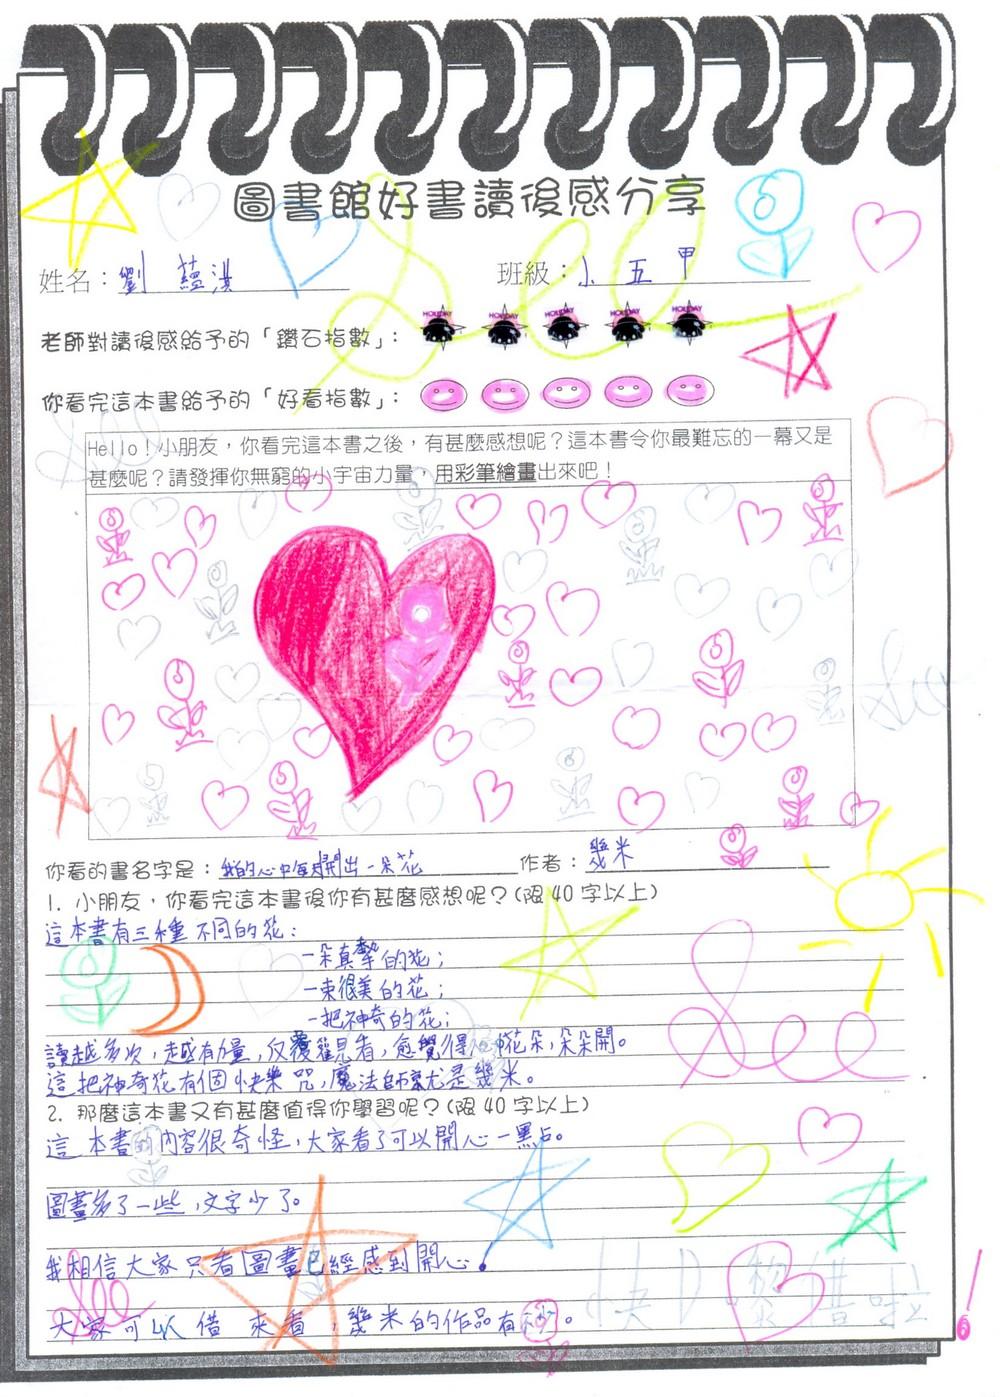 圖書館好書讀後感分享
姓名：劉蘊淇 班級：小五甲
老師對讀後感給予的「鑽石指數」：HOLIDAY HOLIDAY HOLIDAY HOLIDAY HOLIDAY
你看完這本書給予的「好看指數」：
Hello！小朋友，你看完這本書之後，有甚麼感想呢？這本書令你最難忘的一幕又是
甚麼呢？請發揮你無窮的小宇宙力量，用彩筆繪畫出來吧！
你看的書名字是：我的心中每天開出一朵花 作者：幾米
1. 小朋友，你看完這本書後你有甚麼感想呢？(限40字以上)
這本書有三種不同的花：
一朵真摯的花；
一束很美的花；
一把神奇的花；
讀越多次，越有力量，反覆觀看，愈覺得心中花朵，朵朵開。
這把神奇花有個快樂咒，魔法師就是幾米。
2. 那麼這本書又有甚麼值得你學習呢？(限40字以上)
這本書的內容很奇怪，大家看了可以開心一點。
圖畫多了一些，文字少了。
我相信大家只看圖畫已經感到開心。
大家可以借來看，幾米的作品有
See
See
快D黎借啦！
6